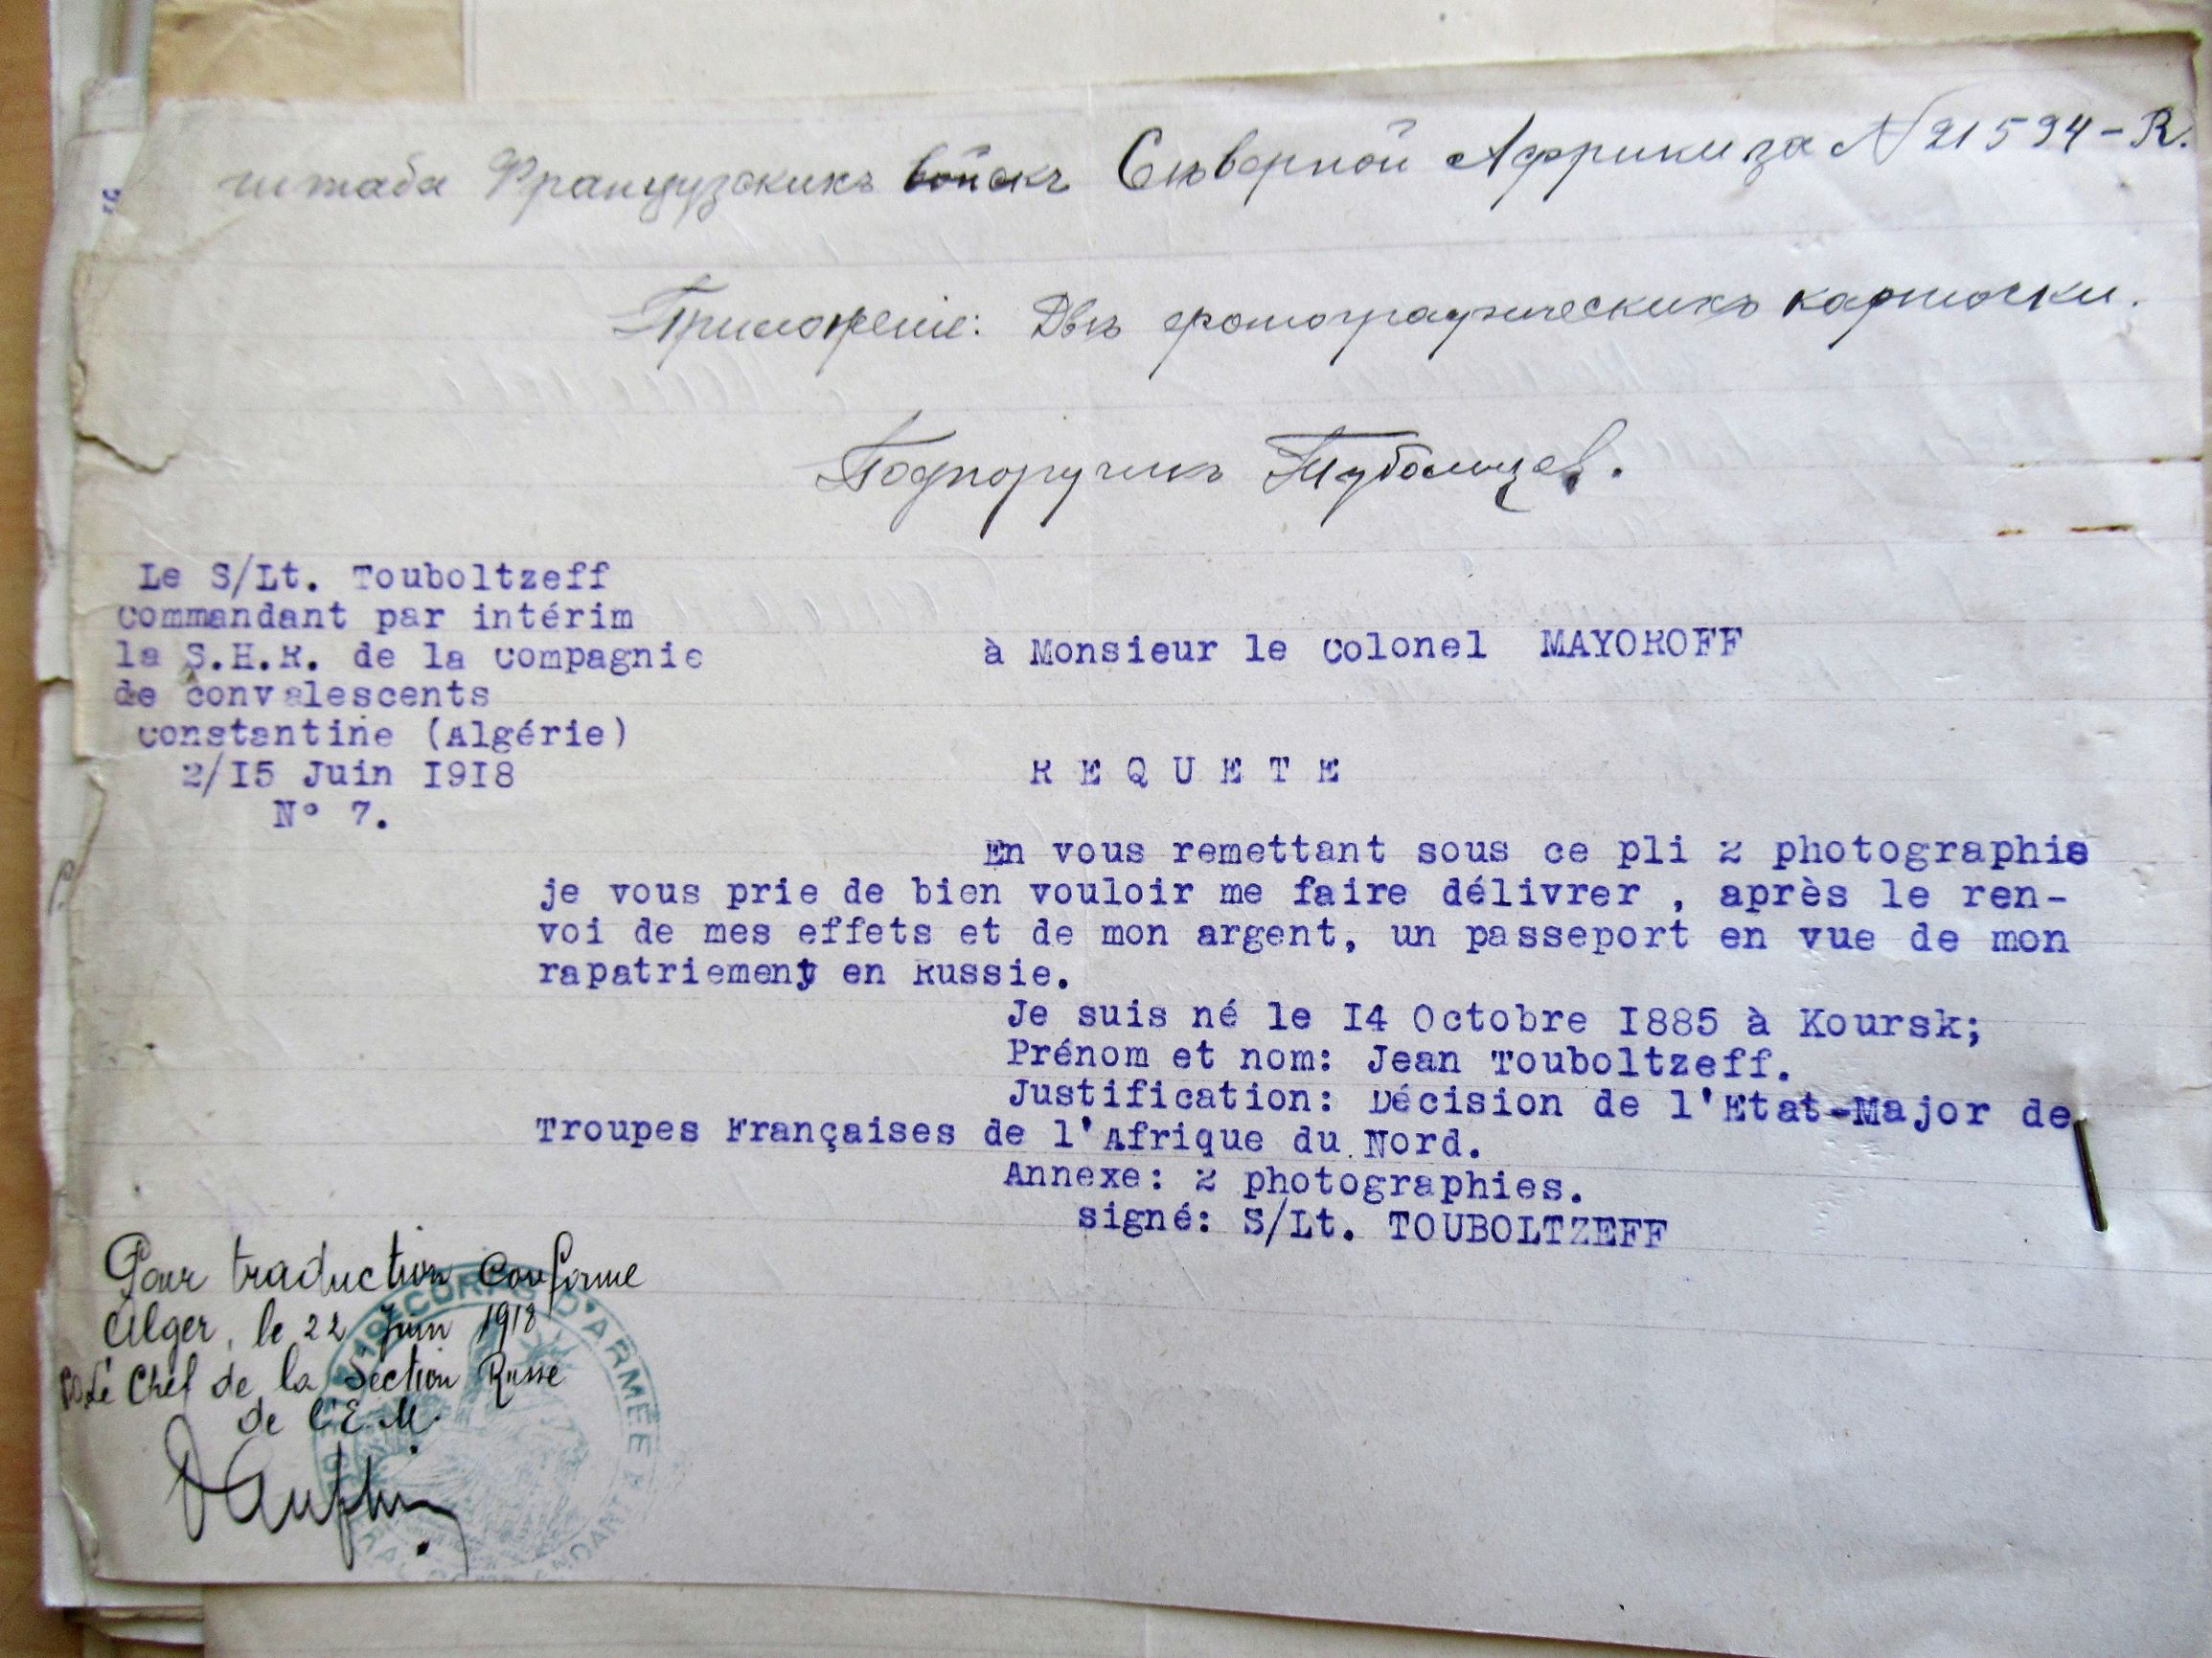 штаба Французскихъ войскъ Сѣверной Африки за № 21594-R.
Приложеніе: Двѣ фотографическихъ карточки.
Подпоручикъ Тубольцев.
Le S/Lt. Touboltzeff
commandant par intérim
la S.H.R. de la compagnie
de convalescents
constantine (Algérie)
2/I5 Juin I9I8
N° 7.
à Monsieur le colonel MAYOROFF
R E Q U E T E
En vous remettant sous ce pli 2 photographie
je vous prie de bien vouloir me faire délivrer , après le ren-
voi de mes effets et de mon argent, un passeport en vue de mon
rapatriement en Russie.
Je suis né le I4 Octobre I885 à Koursk;
Prénom et nom: Jean Touboltzeff.
Justification: Décision de l'Etat-Major de
Troupes Françaises de l'Afrique du Nord.
Annexe: 2 photographies.
signé: S/Lt. TOUBOLTZEFF
Pour traduction conforme
Alger, le 22 Juin 1918
Le Chef de la Section Russe
de l'E.M.
CORPS D'ARMÉE